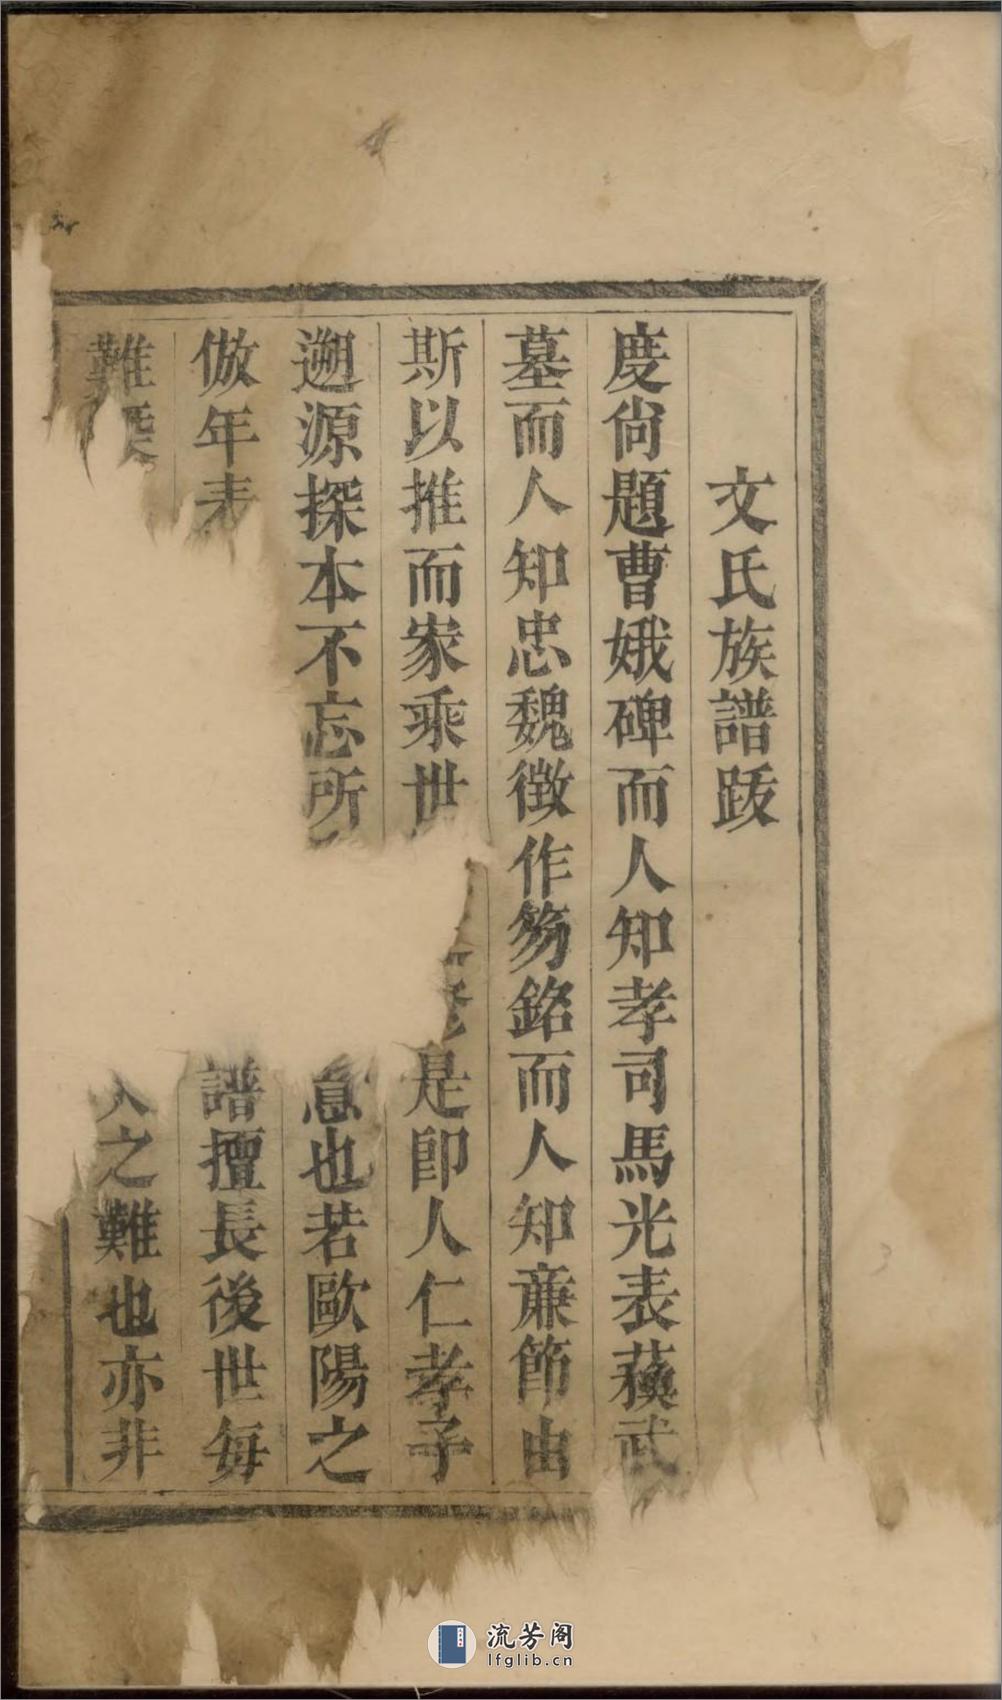 文氏族譜跋
度尙題曹娥碑而人知孝司馬光表蘓武
墓而人知忠魏徵作笏銘而人知亷節由
斯以推而家乘世是卽人仁孝子
遡源探本不忘所息也若歐陽之
倣年表譜擅長後世每
難人之難也亦非
流芳阁
lfglib.cn